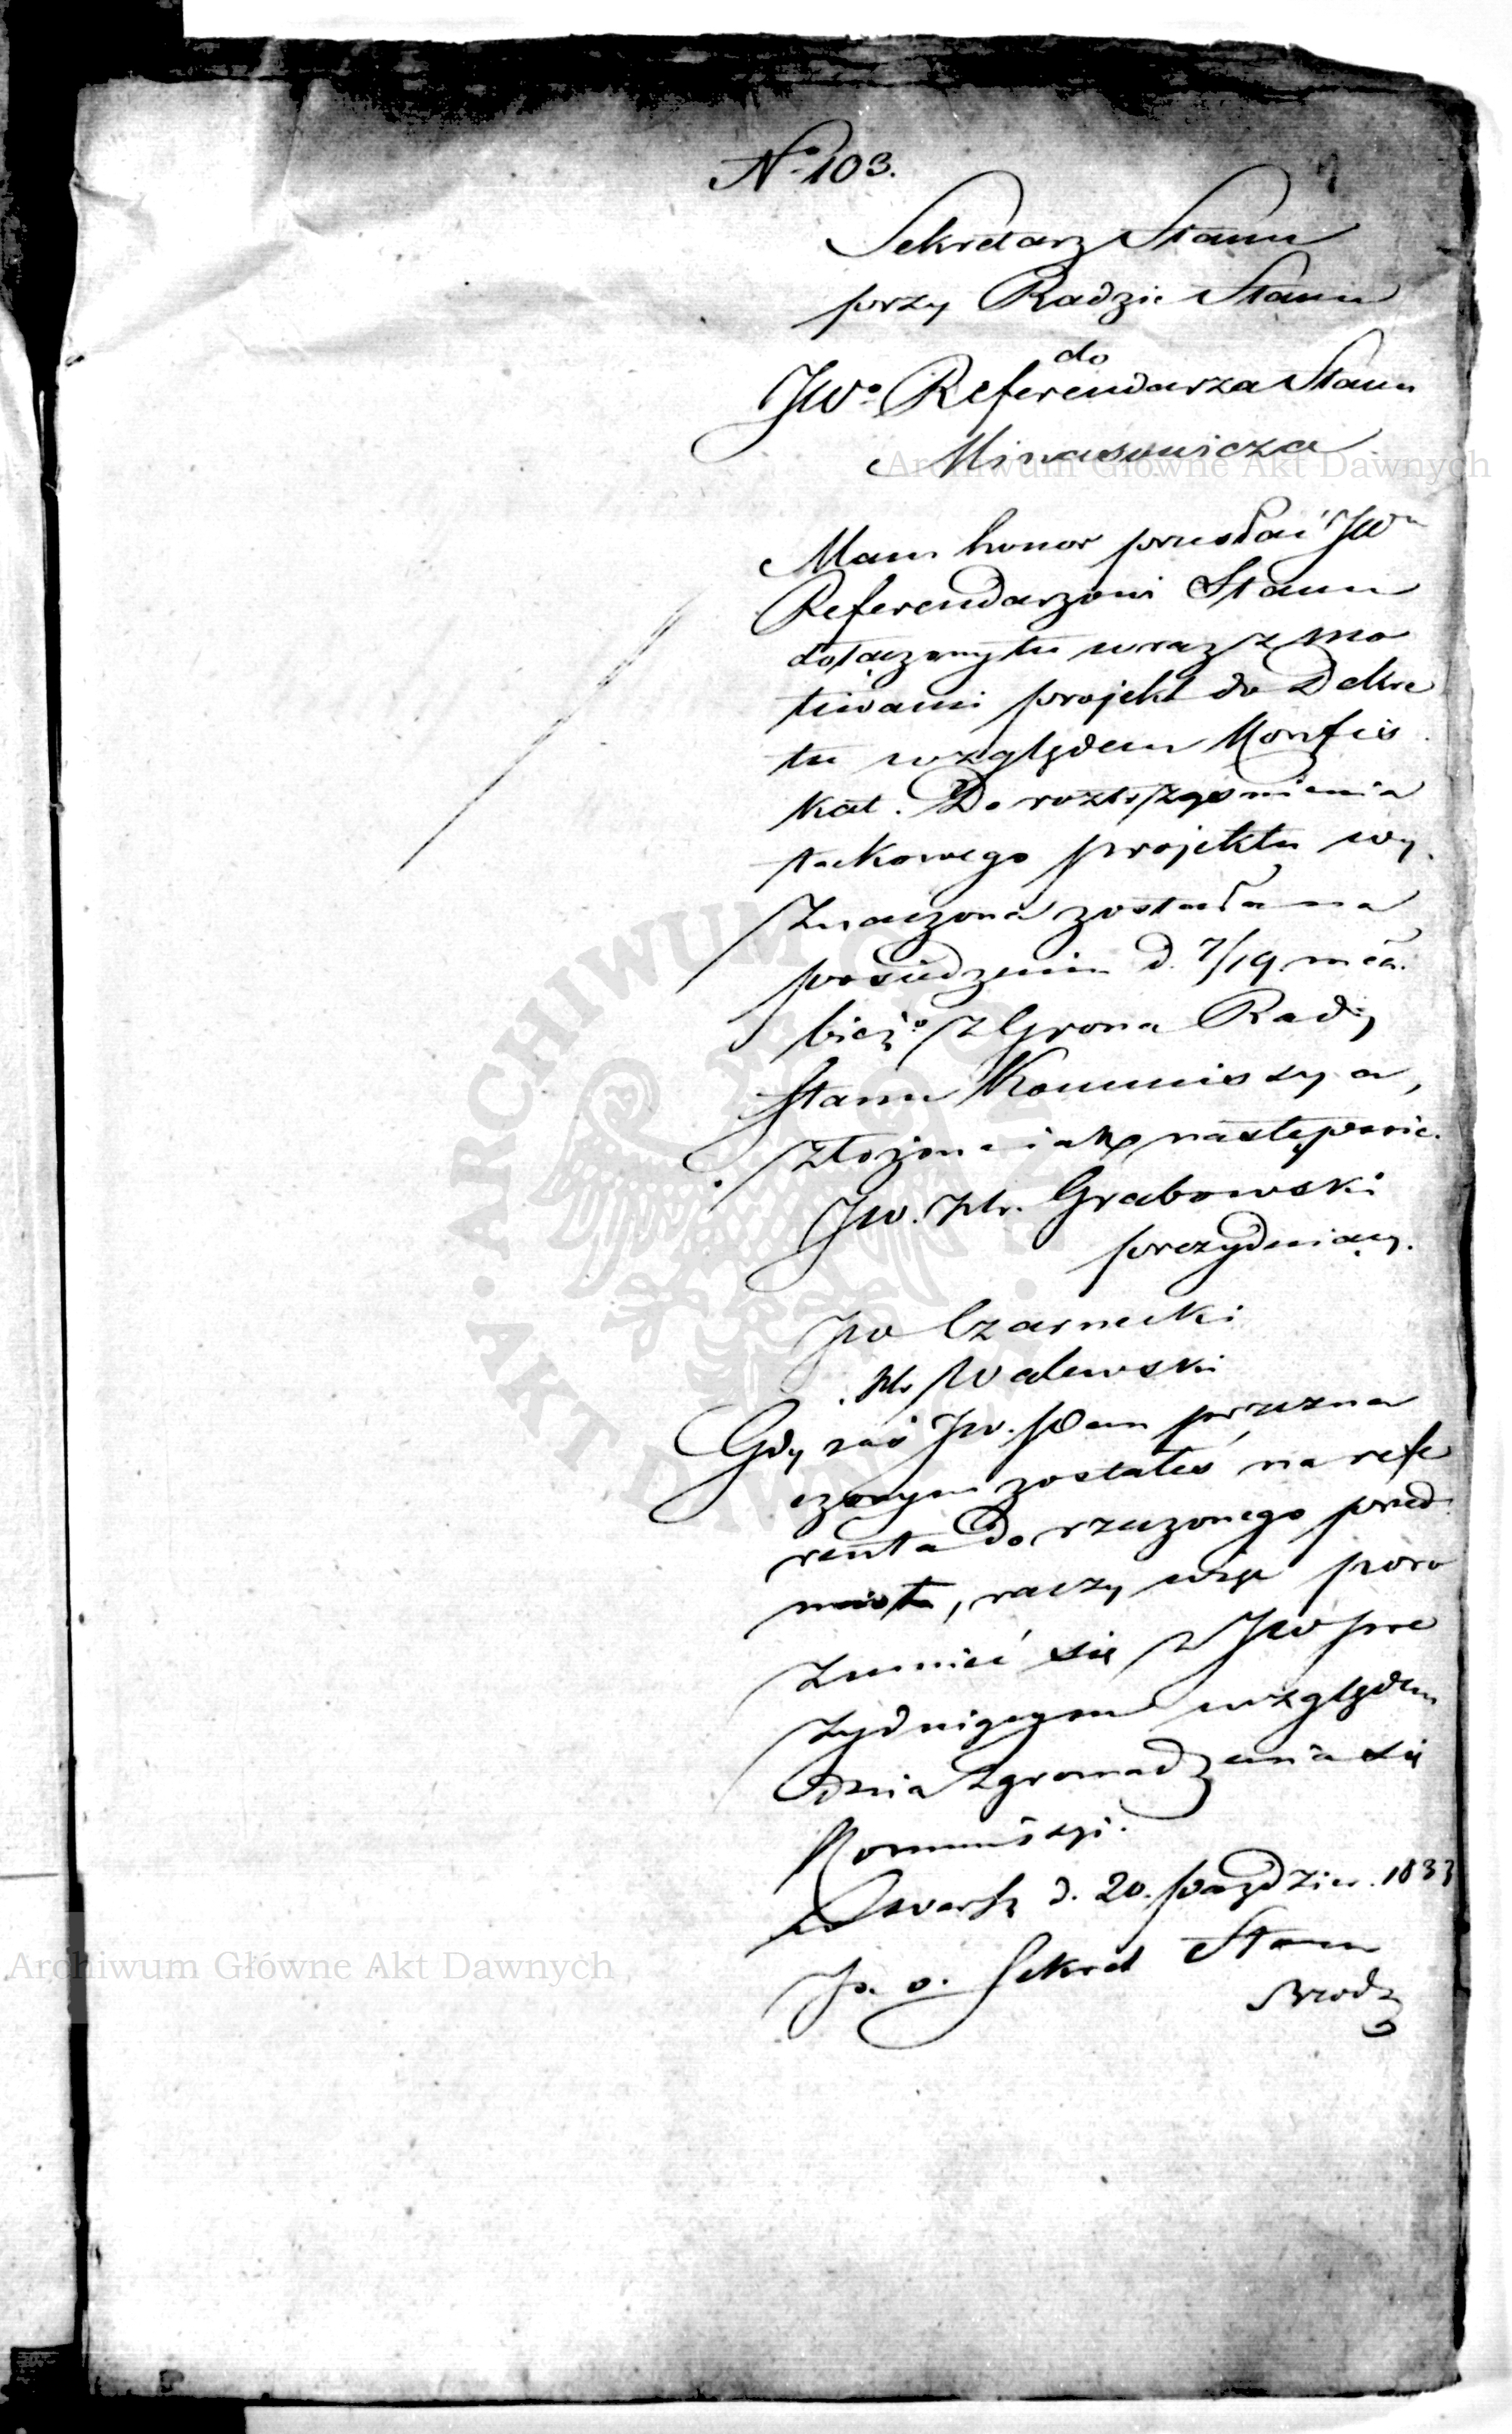 No 103.
Sekretarz Stanu
przy Radzie Stanu
do
JWo Referendarza Stanu
Minasowicza
Mam honor przesłać JWu
Referendarzowi Stanu
dołączony tu wraz z mo
tiwami projekt do Dekre
tu względem Konfis
kat. Do roztrząśnienia
takowego projektu wy
znaczona została na
posiedzeniu d. 7/19 mca
bieżo z Grona Rady
Stanu Kommissya,
złożona iak następuie.
JW. Hr. Grabowski
prezyduiący.
JW Czarnecki
Hr Walewski
Gdy zaś JW. Pan przezna
czonym zostałeś na refe
renta do rzeczonego przed
miotu, raczy więc poro
zumieć się z JW pre
zyduiącym względem
dnia zgromadzenia się
Kommissyi.
w Warsz. d. 20. paździer. 1833
p. o. Sekret Stanu
Archiwum Główne Akt Dawnych
ARCHIWUM GŁÓWNE AKT DAWNYCH
Archiwum Główne Akt Dawnych